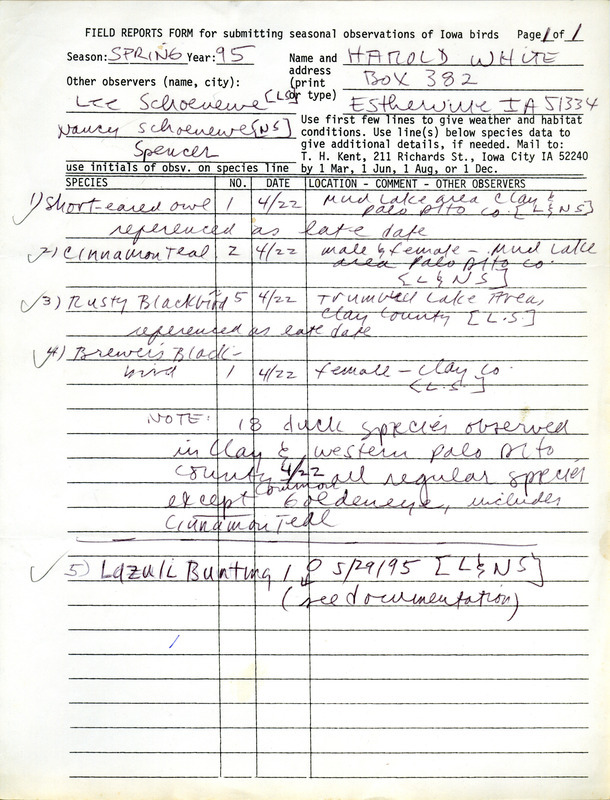 FIELD REPORTS FORM for submitting seasonal observations of Iowa birds Page 1 of 1
Season: SPRING Year: 95 Name and HAROLD WHITE
address BOX 382
Other observers (name, city): (print
Lee Schoenewe [LS] or type) Estherville IA 51334
Nancy Schoenewe [NS] Use first few lines to give weather and habitat
conditions. Use line(s) below species data to
Spencer give additional details, if needed. Mail to:
T. H. Kent, 211 Richards St., Iowa City IA 52240
use initials of obsv. on species line by 1 Mar, 1 Jun, 1 Aug, or 1 Dec.
SPECIES NO. DATE LOCATION - COMMENT - OTHER OBSERVERS
1) Short-eared owl 1 4/22 Mud Lake area Clay &
Palo Alto Co. [L & NS]
referenced as late date
2) Cinnamon Teal 2 4/22 male & female - Mud Lake
area Palo Alto Co.
[L & NS]
3) Rusty Blackbird 5 4/22 Trumbull Lake Area,
Clay County [L.S]
referenced as late date
4) Brewer's Black-
bird 1 4/22 female - Clay Co.
[L.S.]
NOTE: 18 duck species observed
in Clay & western Palo Alto
County 4/22 all regular species
except Common Goldeneye, includes
Cinnamon Teal
5) Lazuli Bunting 1 5/29/95 [L & NS]
(see documentation)